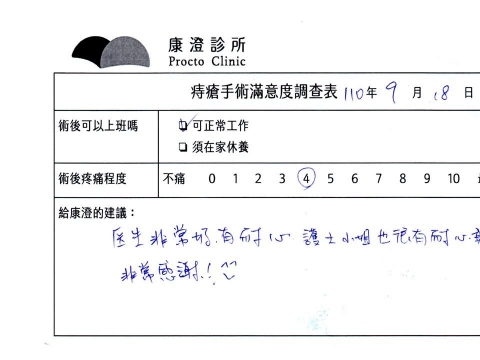 康澄診所
Procto Clinic
痔瘡手術滿意度調查表 110年 9 月 18 日
術後可以上班嗎 ☑可正常工作
□須在家休養
術後疼痛程度 不痛 0 1 2 3 4 5 6 7 8 9 10
給康澄的建議：
医生非常好,有耐心 護士小姐也很有耐心
非常感謝!